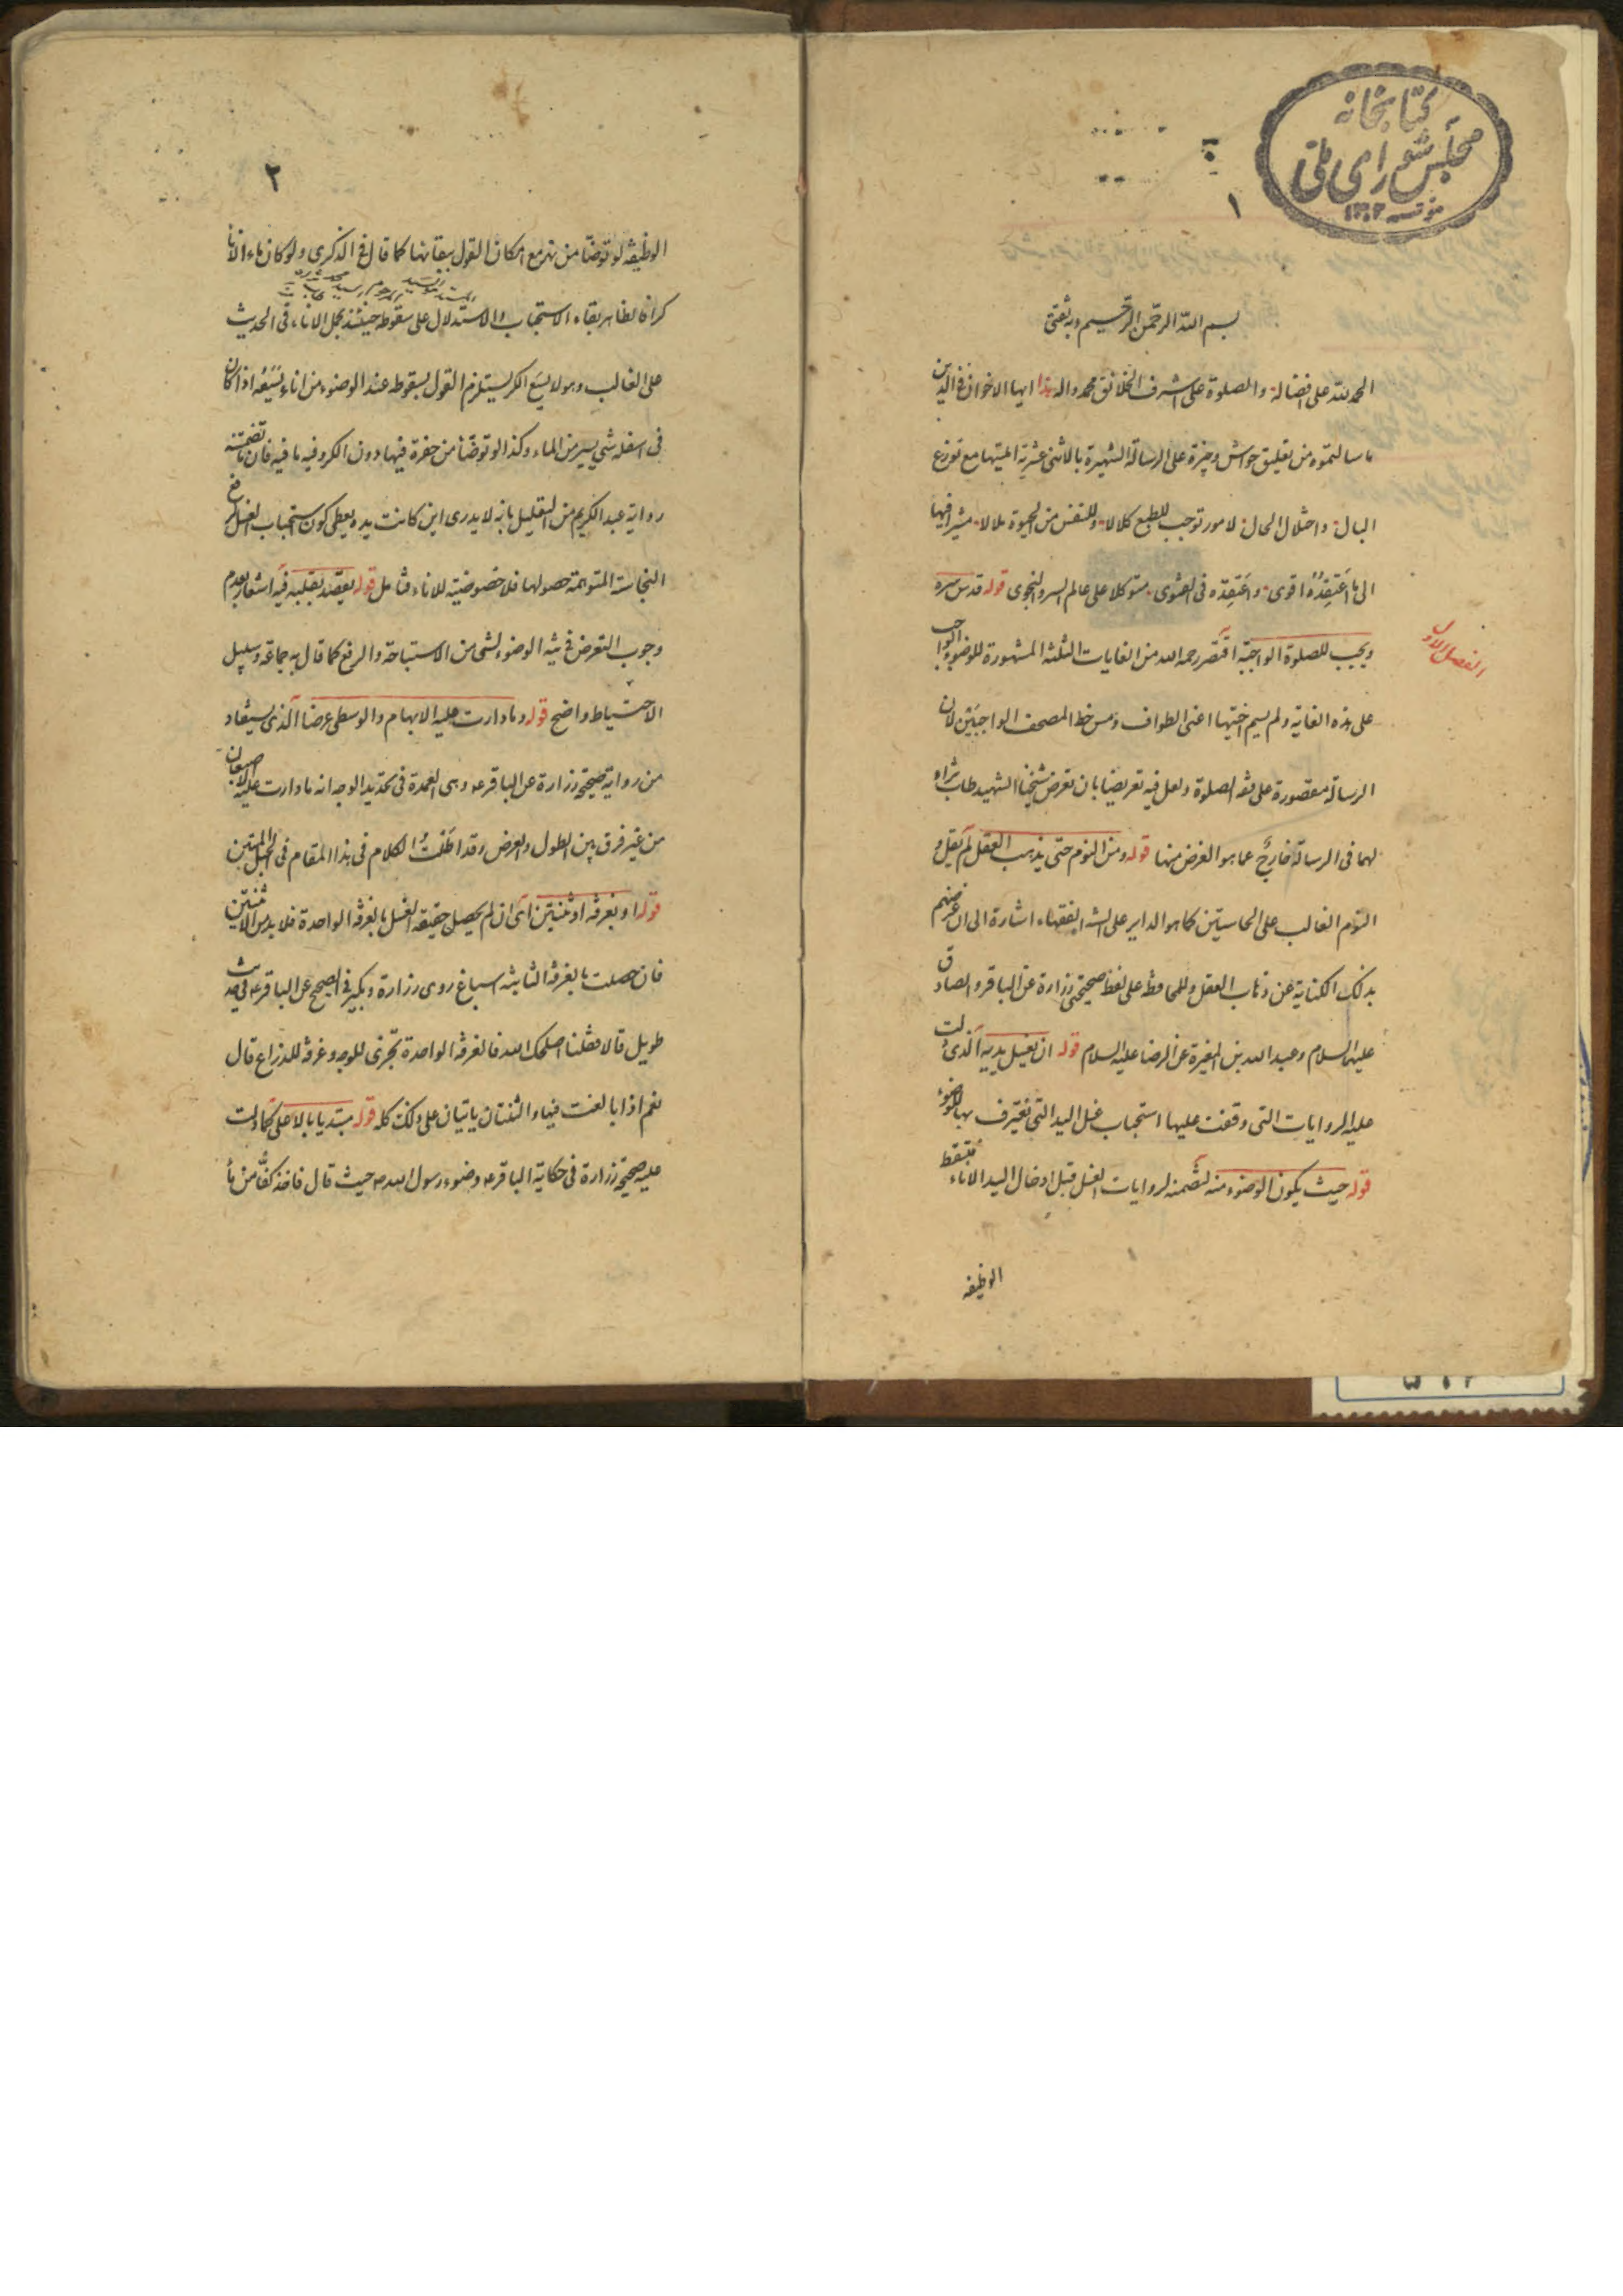 كتابخانه
مجلس شورای ملی
مؤسسه ١٣٠٢
١
بسم الله الرحمن الرحيم وبه ثقتى
الحمد لله على افضاله والصلوة على اشرف الخلائق محمد واله هذا ايها الاخوان فى الدين
ما سالتموه من تعليق حواش وجيزة على الرسالة الشهيرة بالاثنى عشرية امليتها مع توزع
البال واختلال الحال لامور توجب للطبع كلالا وللنفس من الحيوة ملالا مشيرا فيها
الى ما اعتقده اقوى واعتقده فى الفتوى متوكلا على عالم السر والنجوى قوله قدس سره
الفصل الاول
ويجب للصلوة الواجبة اقتصر رحمه الله من الغايات الثلثة المشهورة للوضوء الواجب
على هذه الغاية ولم يسم اختيها اعنى الطواف ومس خط المصحف الواجبين لان
الرسالة مقصورة على فقه الصلوة ولعل فيه تعريضا بان تعرض شيخنا الشهيد طاب ثراه
لهما فى الرسالة خارج عما هو الغرض منها قوله ومن النوم حتى يذهب العقل لم يقل و
النوم الغالب على الحاستين كما هو الداير على السنة الفقهاء اشارة الى ان غرضهم
بذلك الكناية عن ذهاب العقل وللمحافظة على لفظ صحيحتى زرارة عن الباقر والصادق
عليهما السلام وعبد الله بن المغيرة عن الرضا عليه السلام قوله ان يغسل يديه الذى دلت
عليه الروايات التى وقفت عليها استحباب غسل اليد التى تغترف بها للوضوء
قوله حيث يكون الوضوء منه لتضمنه لروايات الغسل قبل ادخال اليد الاناء فتسقط
الوظيفه
٢
الوظيفه لو توضأ من نهر مع امكان القول ببقائها كما قال فى الذكرى ولو كان ماء الاناء
كرا فالظاهر بقاء الاستحباب والاستدلال على سقوطه حينئذ بحمل الاناء فى الحديث
على الغالب وهو لا يسع الكر يستلزم القول بسقوطه عند الوضوء من اناء يسعه اذا كان
فى اسفله شئ يسير من الماء وكذا لو توضأ من حفرة فيها دون الكر وفيه ما فيه فان ما تضمنته
رواية عبد الكريم من التعليل بانه لا يدرى اين كانت يده يعطى كون استحباب الغسل لرفع
النجاسة المتوهمة حصولها فلا خصوصية للاناء فتأمل قوله يقصد بقلبه فيه اشعار بعدم
وجوب التعرض فى نية الوضوء لشئ من الاستباحة والرفع كما قال به جماعة وسبيل
الاحتياط واضح قوله وما دارت عليه الابهام والوسطى عرضا الذى يستفاد
من رواية صحيحة زرارة عن الباقر ع وهى العمدة فى تحديد الوجه انه ما دارت عليه الاصبعان
من غير فرق بين الطول والعرض وقد اطنبت الكلام فى هذا المقام فى الحبل المتين
قوله او بغرفة او ثنتين اى ان لم يحصل حقيقة الغسل بالغرفة الواحدة فلا بد من الاثنتين
فان حصلت بالغرفة الثانية اسباغ روى زرارة وبكير فى الصحيح عن الباقر ع فى حديث
طويل قالا فقلنا اصلحك الله فالغرفة الواحدة تجزى للوجه وغرفة للذراع قال
نعم اذا بالغت فيها والثنتان ياتيان على ذلك كله قوله مبتديا بالاعلى كما دلت
عليه صحيحة زرارة فى حكاية الباقر ع وضوء رسول الله ص حيث قال فاخذ كفا من ماء